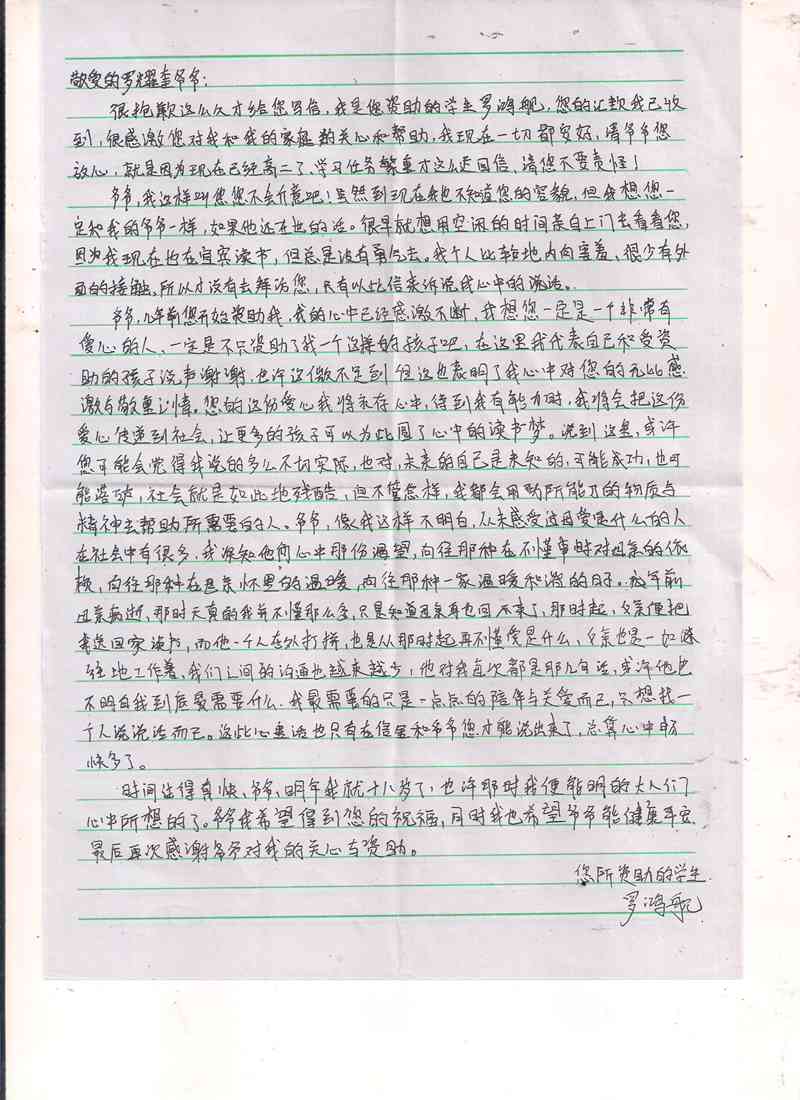 敬爱的罗耀奎爷爷：
很抱歉这么久才给您写信，我是您资助的学生罗鸿舰，您的汇款我已收
到，很感激您对我和我的家庭的关心和帮助，我现在一切都安好，请爷爷您
放心，就是因为现在已经高二了，学习任务繁重才这么迟回信，请您不要责怪！
爷爷，我这样叫您您不会介意吧！虽然到现在我也不知道您的容貌，但我想您一
定和我的爷爷一样，如果他还在世的话。很早就想用空闲的时间亲自上门去看看您，
因为我现在也在宜宾读书，但总是没有勇气去。我个人比较地内向害羞，很少有外
面的接触，所以才没有去拜访您，只有以此信来诉说我心中的说话。
爷爷，几年前您开始资助我，我的心中已经感激不断，我想您一定是一个非常有
爱心的人，一定是不只资助了我一个这样的孩子吧，在这里我代表自己和受资
助的孩子说声谢谢，也许这微不足到但这也表明了我心中对您的无比感
激与敬重之情，您的这份爱心我将永存心中，待到我有能力时，我将会把这份
爱心传递到社会，让更多的孩子可以为此圆了心中的读书梦。说到这里，或许
您可能会觉得我说的多么不切实际，也对，未来的自己是未知的，可能成功，也可
能落破，社会就是如此地残酷，但不管怎样，我都会用助所能力的物质与
精神去帮助所需要的人。爷爷，像我这样不明白，从未感受过母爱是什么的人
在社会中有很多，我深知他们心中那份渴望，向往那种在不懂事时对母亲的依
赖，向往那种在母亲怀里的温暖，向往那种一家温暖和谐的日子。年前
母亲病逝，那时天真的我并不懂那么多，只是知道母亲再也回不来了，那时起，父亲便把
我送回家读书，而他一个人在外打拼，也是从那时起再不懂爱是什么，父亲也是一如既
往地工作着，我们之间的沟通也越来越少，他对我每次都是那几句话，或许他也
不明白我到底最需要什么，我最需要的只是一点点的陪伴与关爱而已，只想找一
个人说说话而已。这些心里话也只有在信里和爷爷您才能说出来了，总算心中畅
快多了。
时间过得真快，爷爷，明年我就十八岁了，也许那时我便能明的大人们
心中所想的了。爷爷我希望得到您的祝福，同时我也希望爷爷能健康平安
最后再次感谢爷爷对我的关心与资助。
您所资助的学生
罗鸿舰